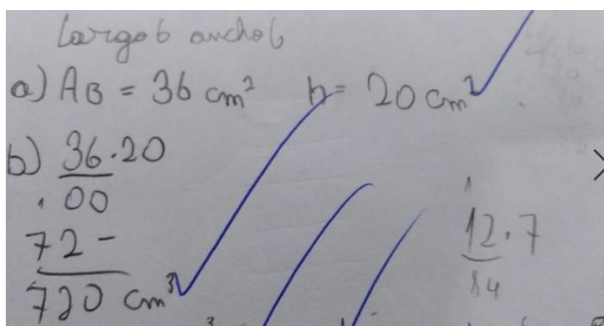 Largo 6 ancho 6
a) AB = 36 cm² h = 20 cm²
b) 36.20
.00
72-
720 cm³
12.7
84